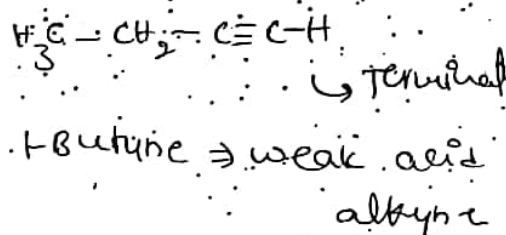 H₃C - CH₂ - C≡C-H
↳ Terminal
1-Butyne ⇒ weak acid
alkyne